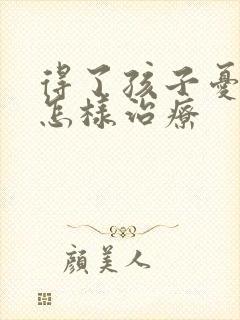 得了孩子憂
怎樣治療
顔美人